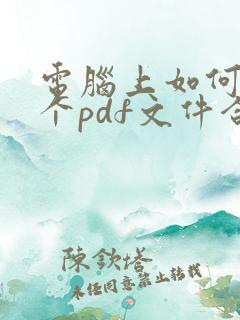 電腦上如何
个pdf文件合
陳欽塔
未经同意禁止转载